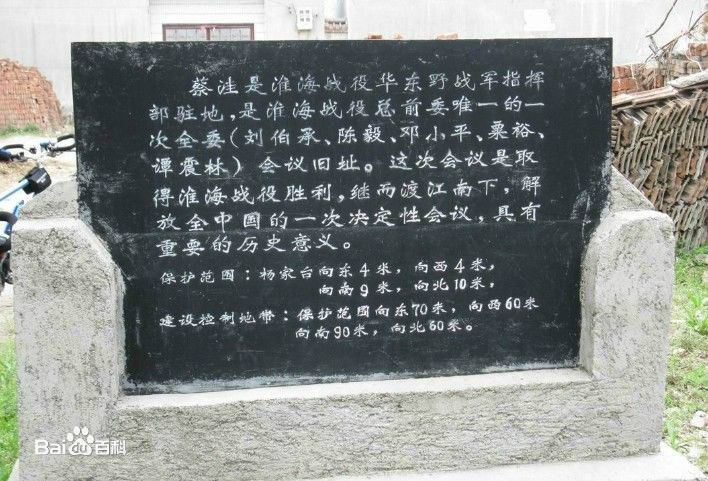 蔡洼是淮海战役华东野战军指挥
部驻地，是淮海战役总前委唯一的一
次全委（刘伯承、陈毅、邓小平、粟裕、
谭震林）会议旧址。这次会议是取
得淮海战役胜利，继而渡江南下，解
放全中国的一次决定性会议，具有
重要的历史意义。
保护范围：杨家台向东4米，向西4米，
向南9米，向北10米，
建设控制地带：保护范围向东70米，向西60米
向南90米，向北60米。
Bai百科